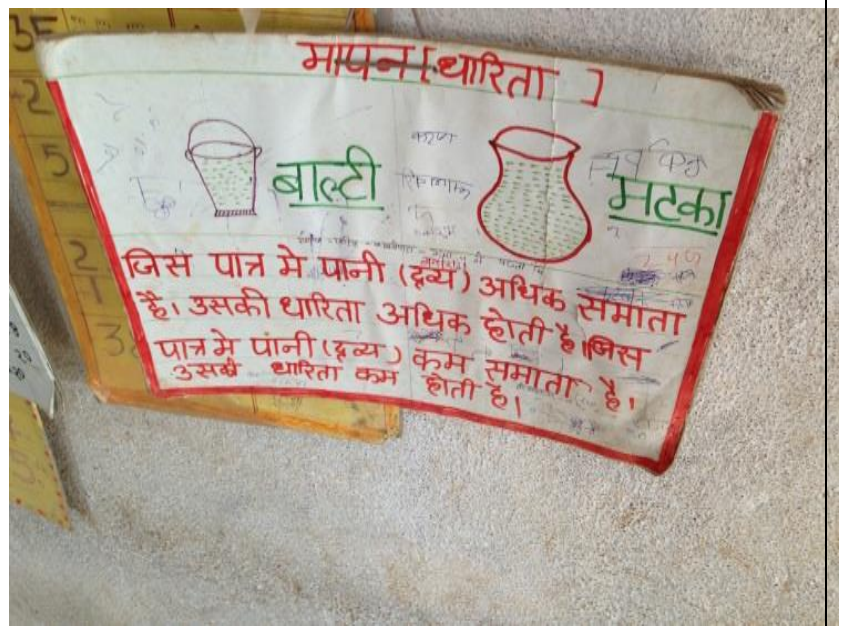 35
2
5
मापन [धारिता ]
बाल्टी
मटका
2
1
3
जिस पात्र मे पानी (द्रव्य) अधिक समाता
है। उसकी धारिता अधिक होती है।जिस
पात्र मे पानी (द्रव्य) कम समाता है।
उसकी धारिता कम होती है।
20